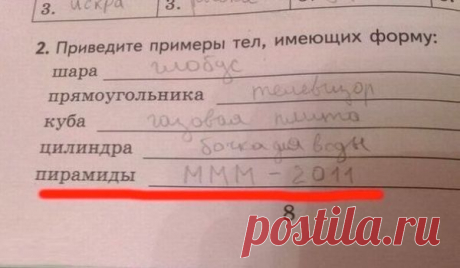 3. искра 3.
2. Приведите примеры тел, имеющих форму:
шара глобус
прямоугольника телевизор
куба газовая плита
цилиндра бочка для воды
пирамиды МММ-2011
8
postila.ru